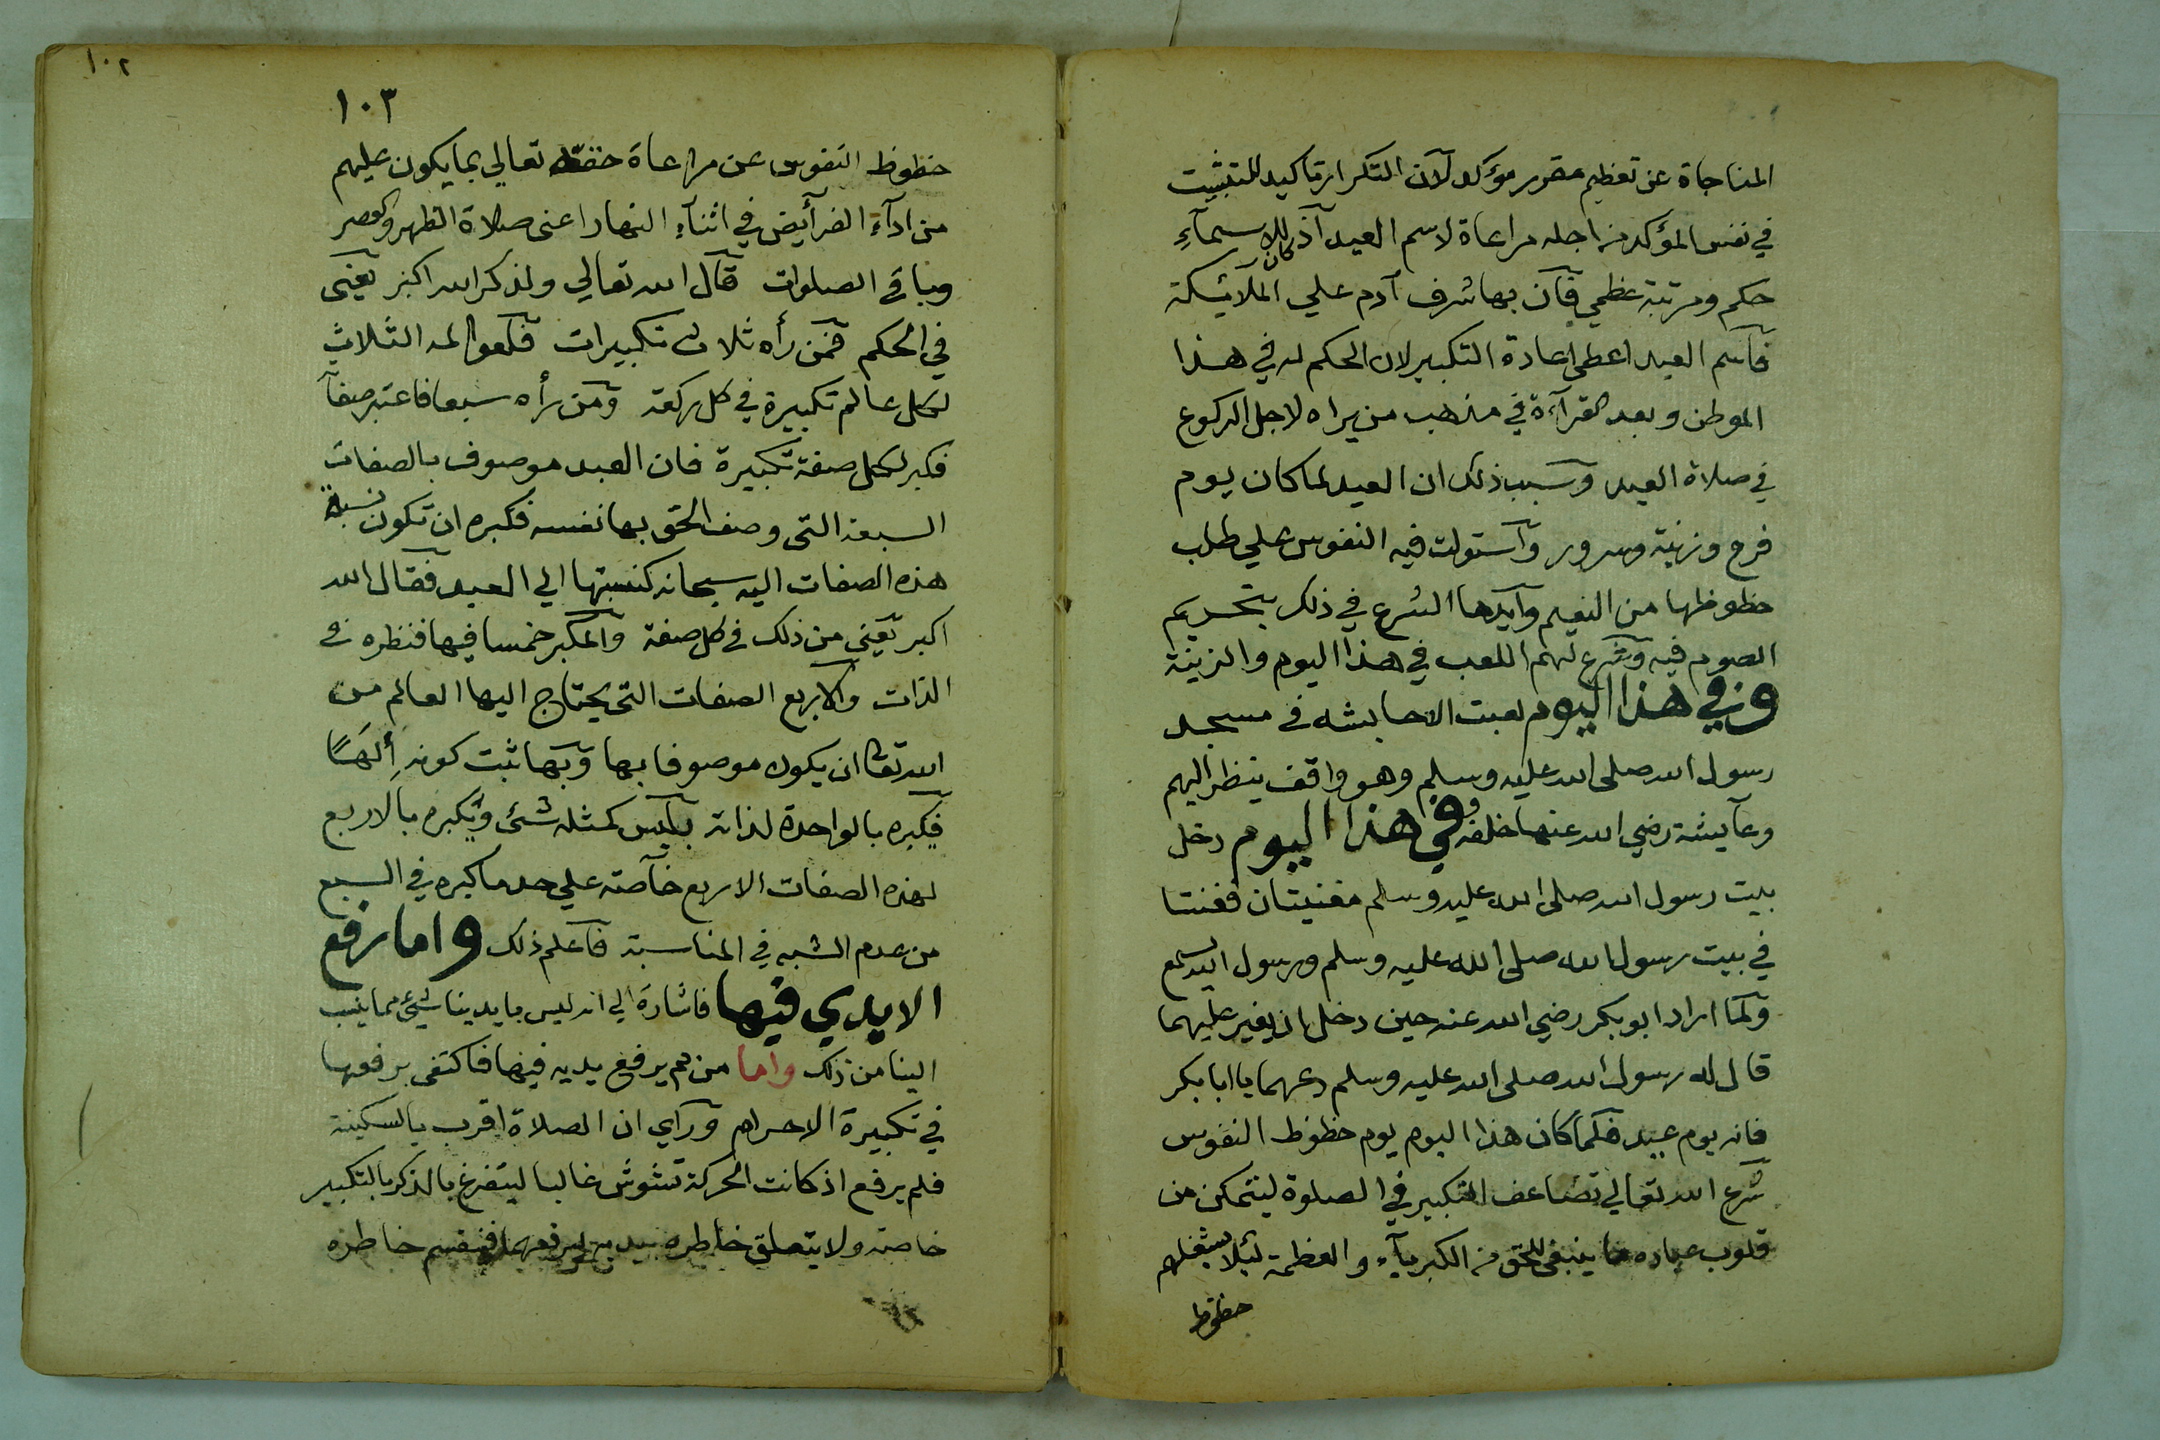 المناجاة عن تعظيم مقرر مؤكد لان التكرار تاكيد للتثبيت
في نفس المؤكد من اجله مراعاة لاسم العيد اذ كان للاسمآء
حكم ومرتبة عظمي فان بها شرف آدم علي الملائكة
فاسم العيد اعطى اعادة التكبير لان الحكم له في هذا
الموطن وبعد القرآءة في مذهب من يراه لاجل الركوع
في صلاة العيد وسبب ذلك ان العيد لما كان يوم
فرح وزينة وسرور واستولت فيه النفوس علي طلب
حظوظها من النعيم وايدها الشرع في ذلك بتحريم
الصوم فيه وشرع لهم اللعب في هذا اليوم والزينة
وفي هذا اليوم لعبت الاحابشه في مسجد
رسول الله صلى الله عليه وسلم وهو واقف ينظر اليهم
وعآيشة رضي الله عنها خلفه وفي هذا اليوم دخل
بيت رسول الله صلى الله عليه وسلم مغنيتان فغنتا
في بيت رسول الله صلى الله عليه وسلم ورسول الله يسمع
ولما اراد ابو بكر رضي الله عنه حين دخل ان يغير عليهما
قال له رسول الله صلى الله عليه وسلم دعهما يا ابا بكر
فانه يوم عيد فلما كان هذا اليوم يوم حظوظ النفوس
شرع الله تعالي تضاعف التكبير في الصلوة ليتمكن من
قلوب عباده ما ينبغي للحق من الكبريآء والعظمة لئلا يشغلهم
حظوظ
١٠٢
١٠٣
حظوظ النفوس عن مراعاة حقه تعالي بما يكون عليهم
من ادآء الفرآيض في اثنآء النهار اعنى صلاة الظهر والعصر
وباقي الصلوات قال الله تعالي ولذكر الله اكبر يعني
في الحكم فمن رأه ثلاث تكبيرات فلعوالمه الثلاث
لكل عالم تكبيرة في كل ركعة ومن رأه سبعا فاعتبر صفاته
فكبر لكل صفة تكبيرة فان العبد موصوف بالصفات
السبعة التى وصف الحق بها نفسه فكبره ان تكون نسبة
هذه الصفات اليه سبحانه كنسبتها الي العبد فقال الله
اكبر يعني من ذلك في كل صفة والمكبر خمسا فيها فنظره في
الذات والاربع الصفات التى يحتاج اليها العالم من
الله تعالى ان يكون موصوفا بها وبها ثبت كونه إلهًا
فيكبره بالواحدة لذاته بليس كمثله شئ ويكبره بالاربع
لهذه الصفات الاربع خآصة علي حد ما كبره في السبع
من عدم الشبه في المناسبة فاعلم ذلك واما رفع
الايدي فيها فاشارة الي انه ليس بايدينا شيئ مما ينسب
الينا من ذلك واما من لم يرفع يديه فيها فاكتفى برفعها
في تكبيرة الاحرام ورآي ان الصلاة اقرب بالسكينة
فلم يرفع اذ كانت الحركة تشوش غالبا ليتفرغ بالذكر بالتكبير
خاصة ولا يتعلق خاطره بيديه ليرفعهما فينقسم خاطره